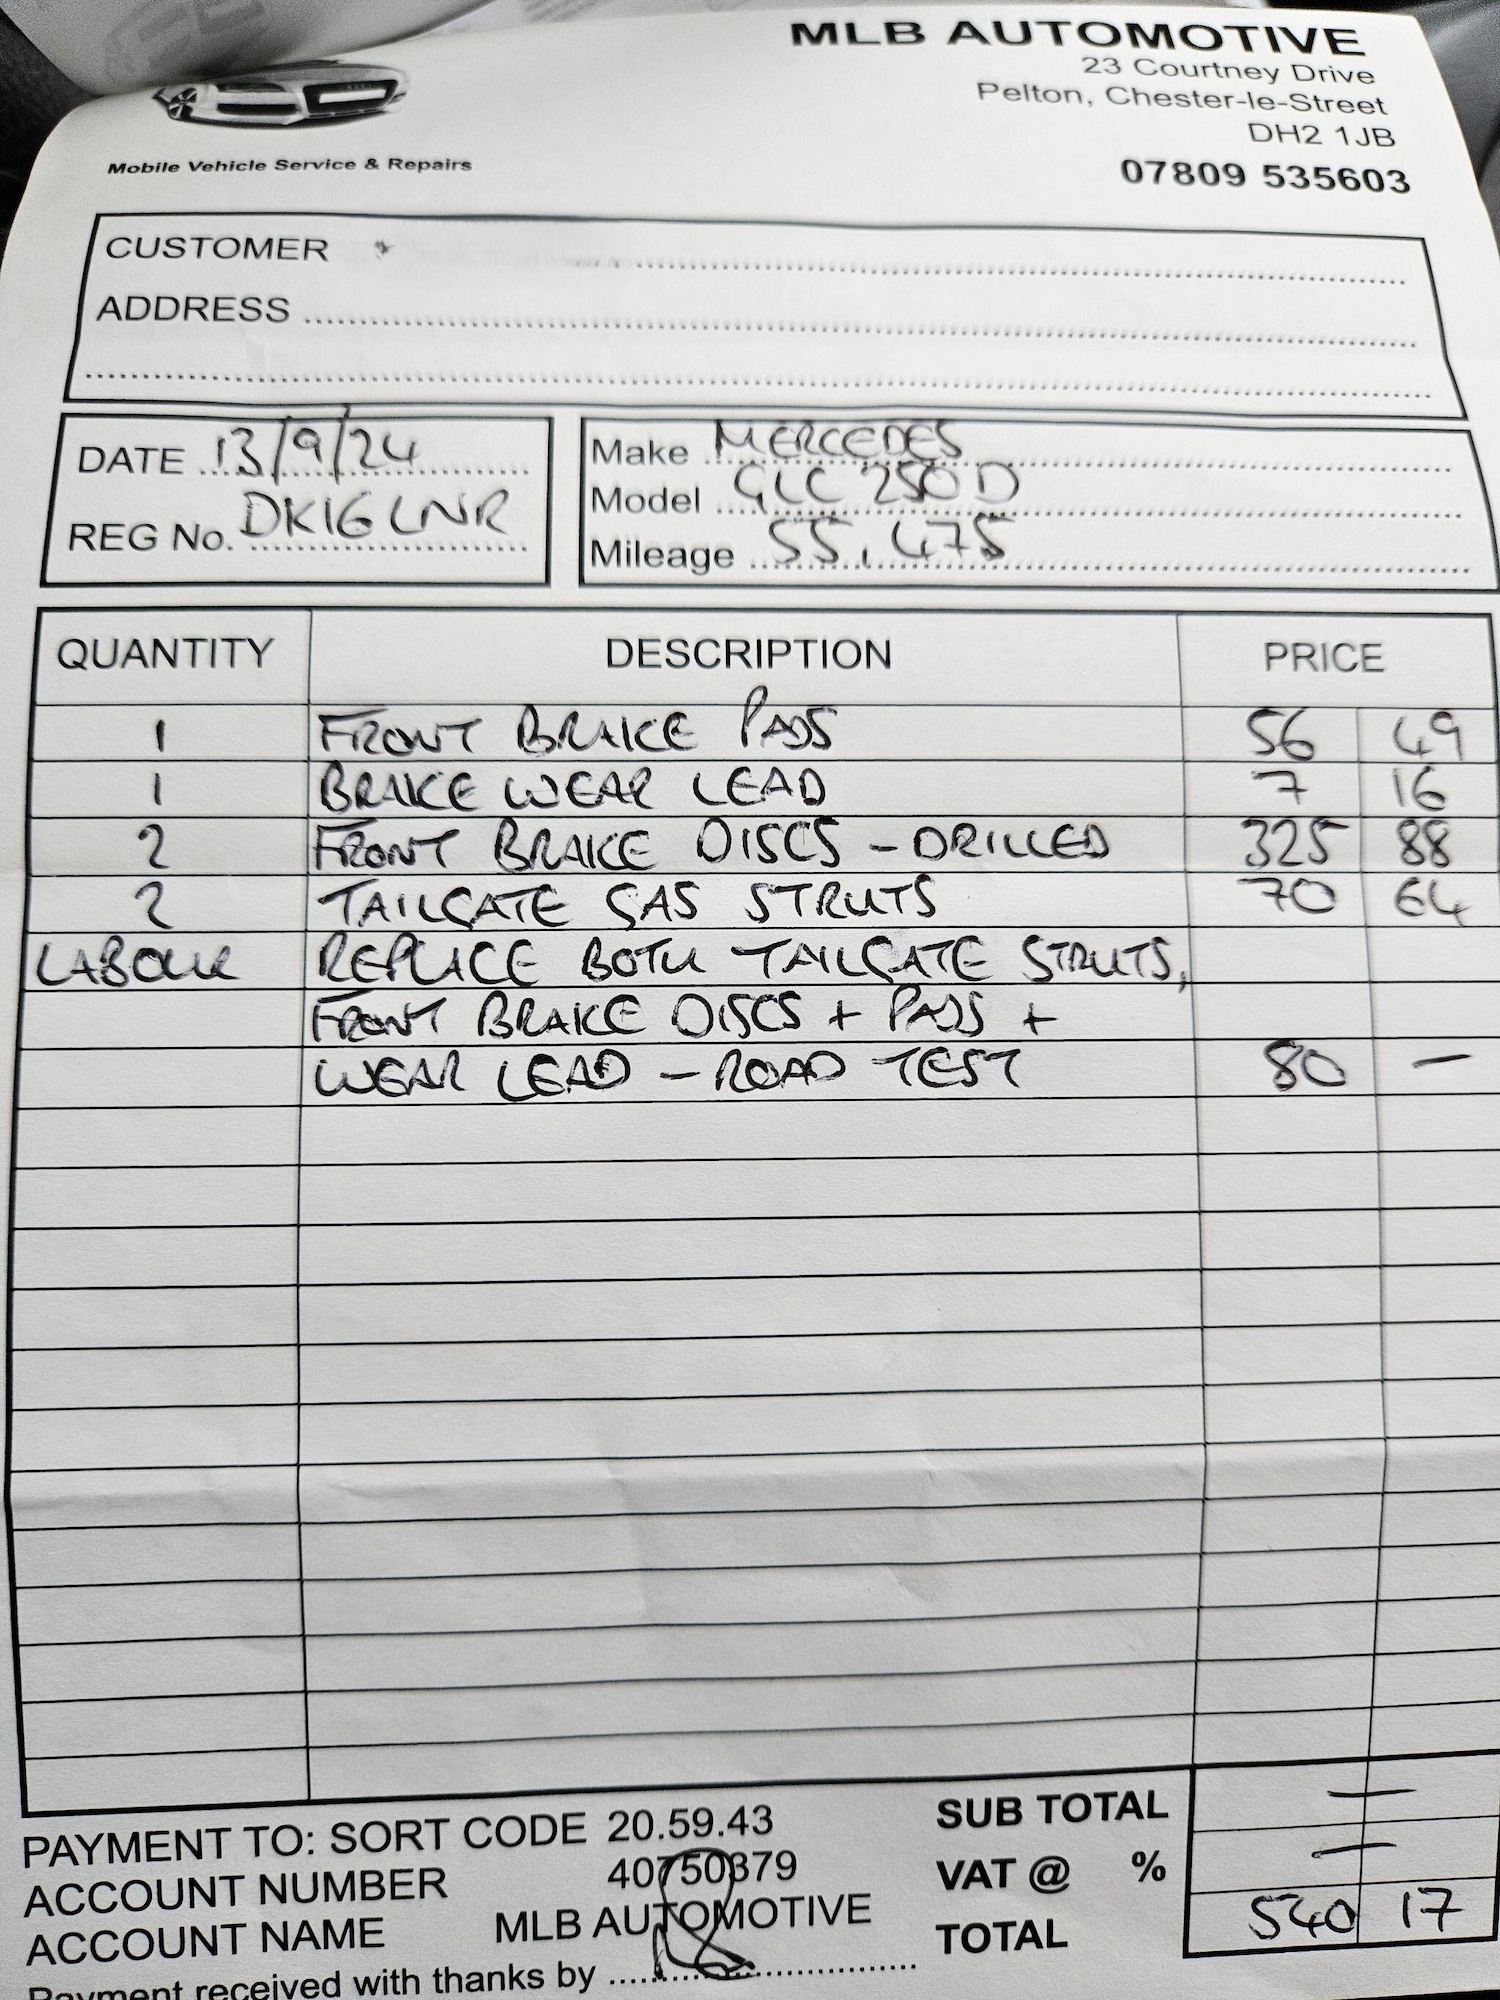 MLB AUTOMOTIVE
23 Courtney Drive
Pelton, Chester-le-Street
DH2 1JB
07809 535603
Mobile Vehicle Service & Repairs
CUSTOMER
ADDRESS
DATE 13/9/24
REG No. DK16 LNR
Make MERCEDES
Model GLC 250 D
Mileage 55,475
QUANTITY DESCRIPTION PRICE
1 FRONT BRAKE PADS 56 49
1 BRAKE WEAR LEAD 7 16
2 FRONT BRAKE DISCS - DRILLED 325 88
2 TAILGATE GAS STRUTS 70 64
LABOUR REPLACE BOTH TAILGATE STRUTS,
FRONT BRAKE DISCS + PADS +
WEAR LEAD - ROAD TEST 80 —
PAYMENT TO: SORT CODE 20.59.43 SUB TOTAL —
ACCOUNT NUMBER 40750379 VAT @ % —
ACCOUNT NAME MLB AUTOMOTIVE TOTAL 540 17
Payment received with thanks by